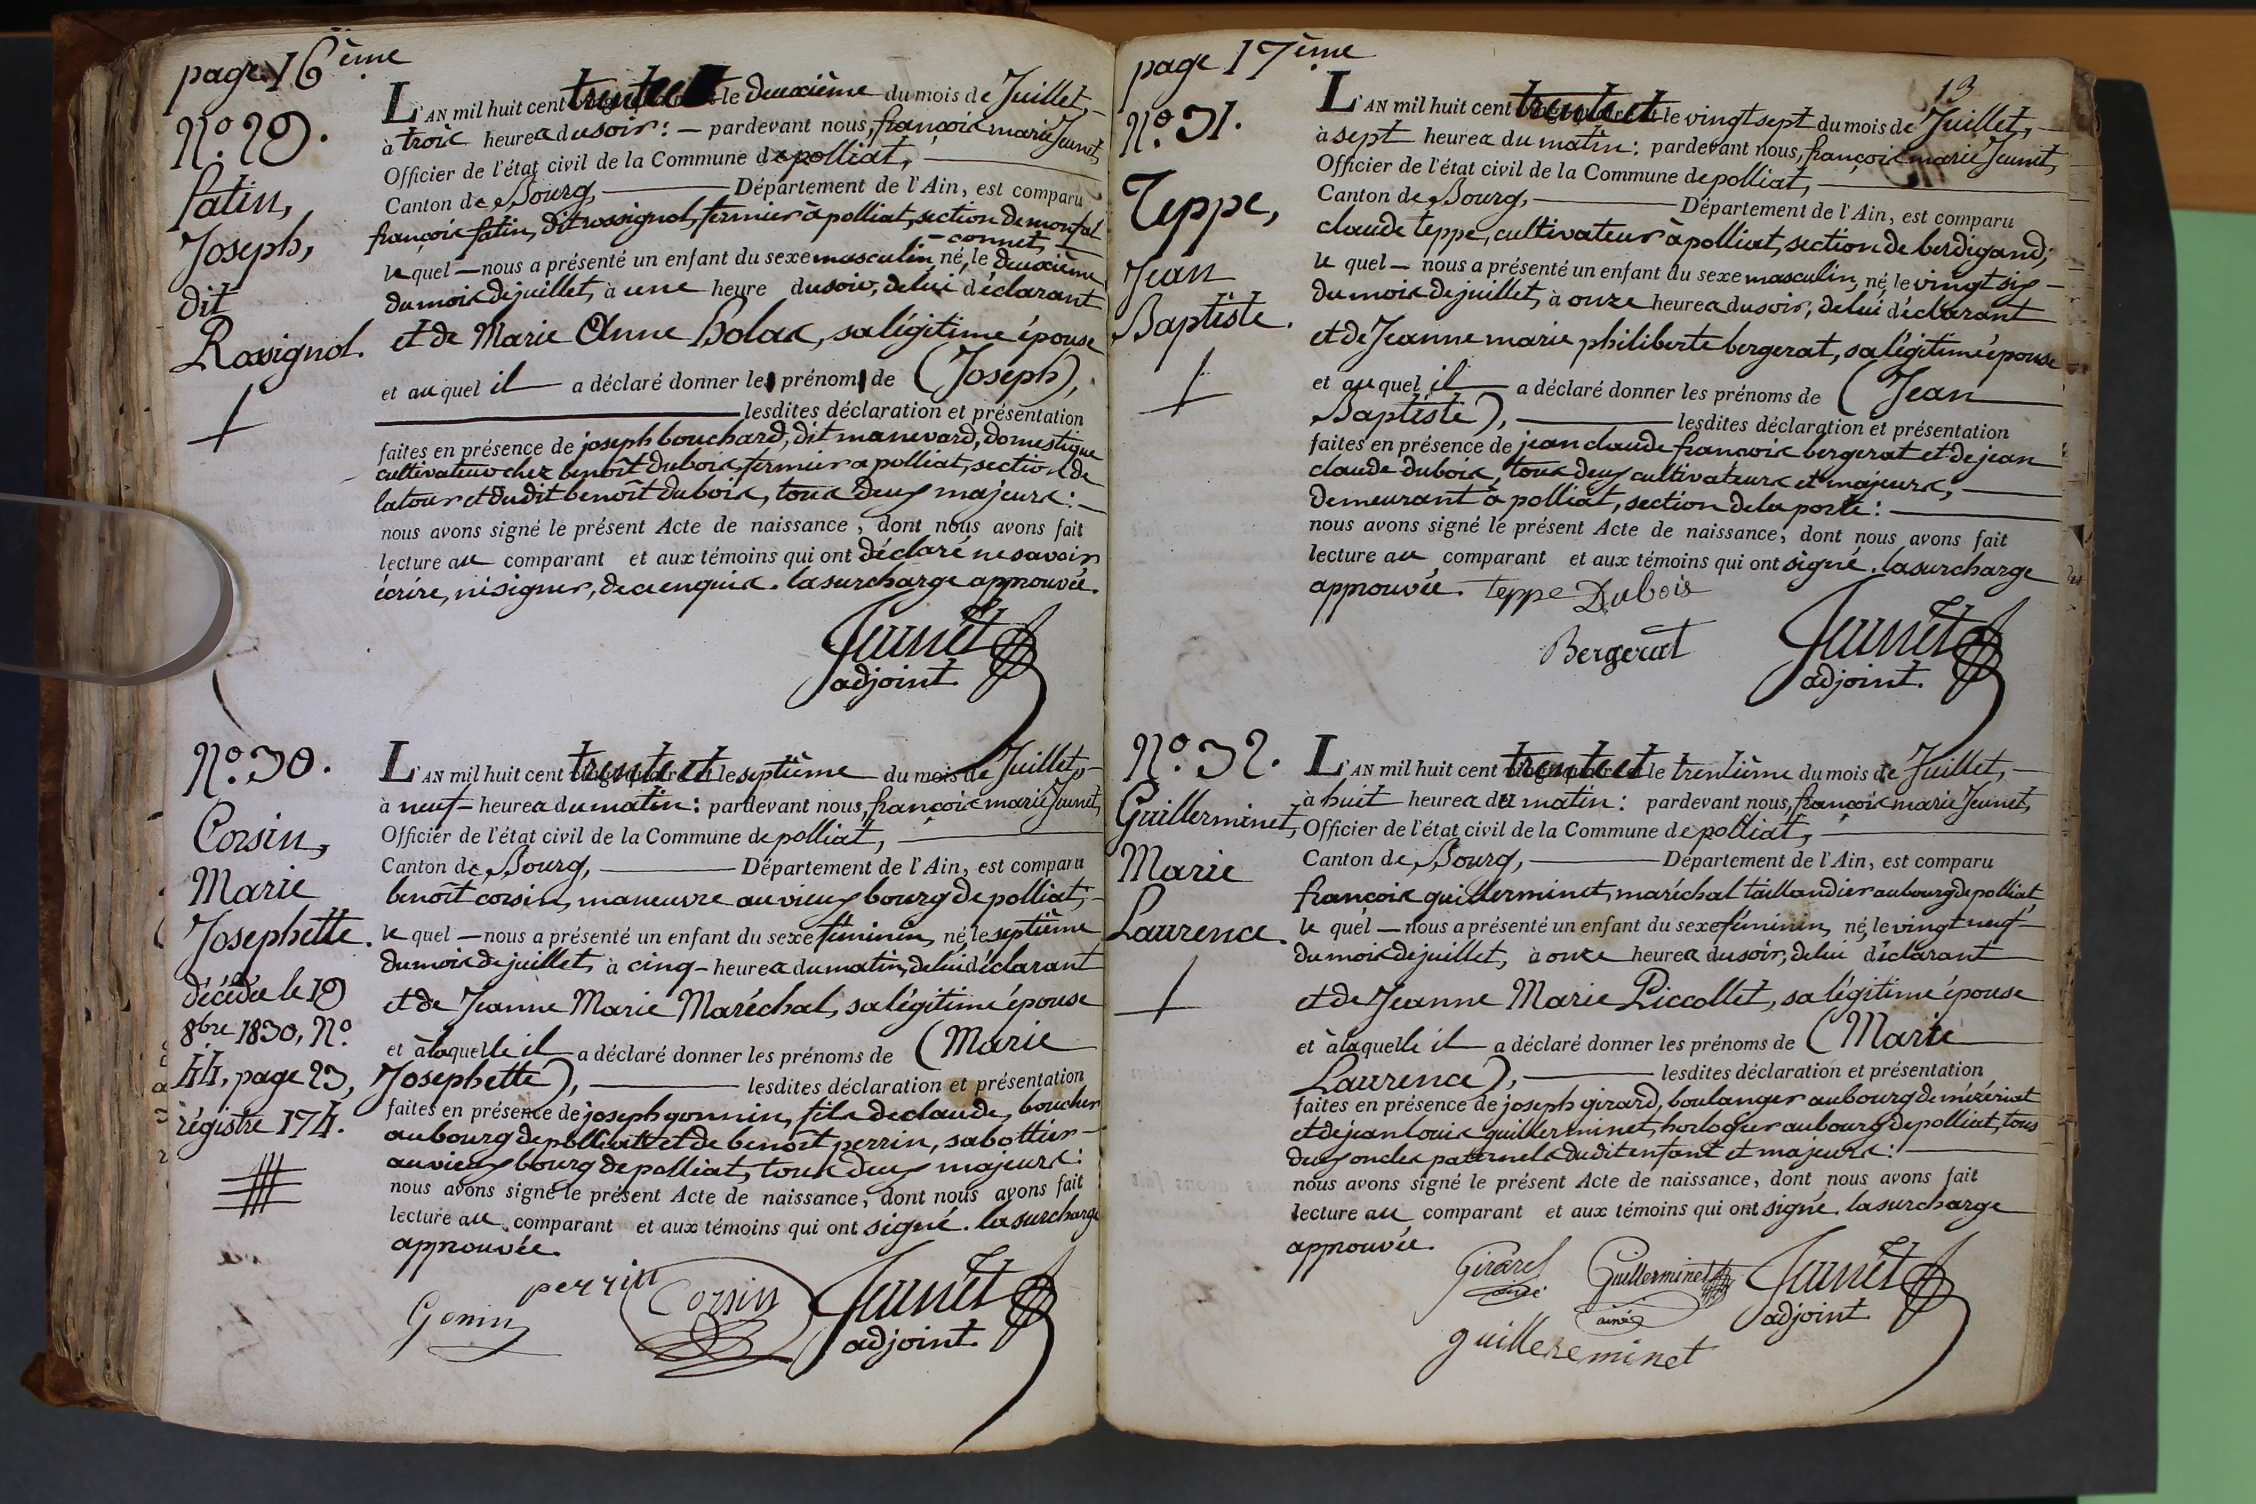 page 16ème
Nº. 29.
fatin,
Joseph,
dit
Rossignol.
L'AN mil huit cent trente et le deuxième du mois de Juillet,
à trois heures du soir : — pardevant nous, françois marie Jeunet,
Officier de l'état civil de la Commune de polliat,
Canton de Bourg, Département de l'Ain, est comparu
françois fatin, dit rossignol, fermier à polliat, section de monfal
-connet,
le quel — nous a présenté un enfant du sexe masculin, né, le deuxième
du mois de juillet, à une heure du soir, de lui déclarant
et de Marie Anne Bolas, sa légitime épouse
et au quel il a déclaré donner le prénom de (Joseph),
lesdites déclaration et présentation
faites en présence de joseph bouchard, dit manevard, domestique
cultivateur chez benoît dubois, fermier a polliat, section de
latour et dudit benoît dubois, tous deux majeurs :
nous avons signé le présent Acte de naissance, dont nous avons fait
lecture au comparant et aux témoins qui ont déclaré ne savoir
écrire, ni signer, de ce enquis. la surcharge approuvée.
Jeunet
adjoint.
Nº. 30.
Corsin,
Marie
Josephette.
décédée le 19
8bre 1830, Nº.
44, page 23,
régistre 174.
L'AN mil huit cent trente et le septième du mois de Juillet,
à neuf heures du matin : pardevant nous, françois marie Jeunet,
Officier de l'état civil de la Commune de polliat,
Canton de Bourg, Département de l'Ain, est comparu
benoît corsin, maneuvre au vieux bourg de polliat,
le quel — nous a présenté un enfant du sexe féminin, né, le septième
du mois de juillet, à cinq heures du matin, de lui déclarant
et de Jeanne Marie Maréchal, sa légitime épouse
et à laquelle il a déclaré donner les prénoms de (Marie
Josephette), lesdites déclaration et présentation
faites en présence de joseph gonnin, fils de claude, boucher
au bourg de polliat et de benoît perrin, sabottier
au vieux bourg de polliat, tous deux majeurs :
nous avons signé le présent Acte de naissance, dont nous avons fait
lecture au comparant et aux témoins qui ont signé. la surcharge
approuvée.
perrin
Gonin Corsin Jeunet
adjoint.
page 17ème
13
Nº. 31.
Teppe,
Jean
Baptiste.
L'AN mil huit cent trente et le vingt sept du mois de Juillet,
à sept heures du matin : pardevant nous, françois marie Jeunet,
Officier de l'état civil de la Commune de polliat,
Canton de Bourg, Département de l'Ain, est comparu
claude teppe, cultivateur à polliat, section de berdigand,
le quel — nous a présenté un enfant du sexe masculin, né, le vingt six
du mois de juillet, à onze heures du soir, de lui déclarant
et de Jeanne marie philiberte bergerat, sa légitime épouse
et au quel il a déclaré donner les prénoms de (Jean
Baptiste), lesdites déclaration et présentation
faites en présence de jean claude françois bergerat et de jean
claude dubois, tous deux cultivateurs et majeurs,
demeurant à polliat, section de la poste :
nous avons signé le présent Acte de naissance, dont nous avons fait
lecture au comparant et aux témoins qui ont signé. la surcharge
approuvée. teppe Dubois
Bergerat Jeunet
adjoint.
Nº. 32.
Guillerminet,
Marie
Laurence.
L'AN mil huit cent trente et le trentième du mois de Juillet,
à huit heures du matin : pardevant nous, françois marie Jeunet,
Officier de l'état civil de la Commune de polliat,
Canton de Bourg, Département de l'Ain, est comparu
françois guillerminet, maréchal taillandier au bourg de polliat,
le quel — nous a présenté un enfant du sexe féminin, né, le vingt neuf
du mois de juillet, à onze heures du soir, de lui déclarant
et de Jeanne Marie Piccollet, sa légitime épouse
et à laquelle il a déclaré donner les prénoms de (Marie
Laurence), lesdites déclaration et présentation
faites en présence de joseph girard, boulanger au bourg de mézériat
et de jean louis guillerminet, horloger au bourg de polliat, tous
deux oncles paternels dudit enfant et majeurs :
nous avons signé le présent Acte de naissance, dont nous avons fait
lecture au comparant et aux témoins qui ont signé. la surcharge
approuvée.
Girard Guillerminet Jeunet
ainé adjoint.
guillereminet